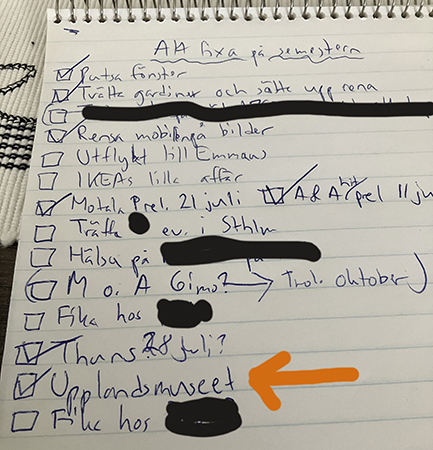 Att fixa på semestern
Putsa fönster
Tvätta gardiner och sätta upp rena
Rensa mobilen på bilder
Utflykt till Emmaus
IKEAs lilla affär
Motala Prel. 21 juli A & A hit prel 11 ju
Träffa ev. i Sthlm
Hälsa på
(M o. A Gimo? → Trol. oktober)
Fika hos
Thuns 28 juli?
Upplandsmuseet
Fika hos